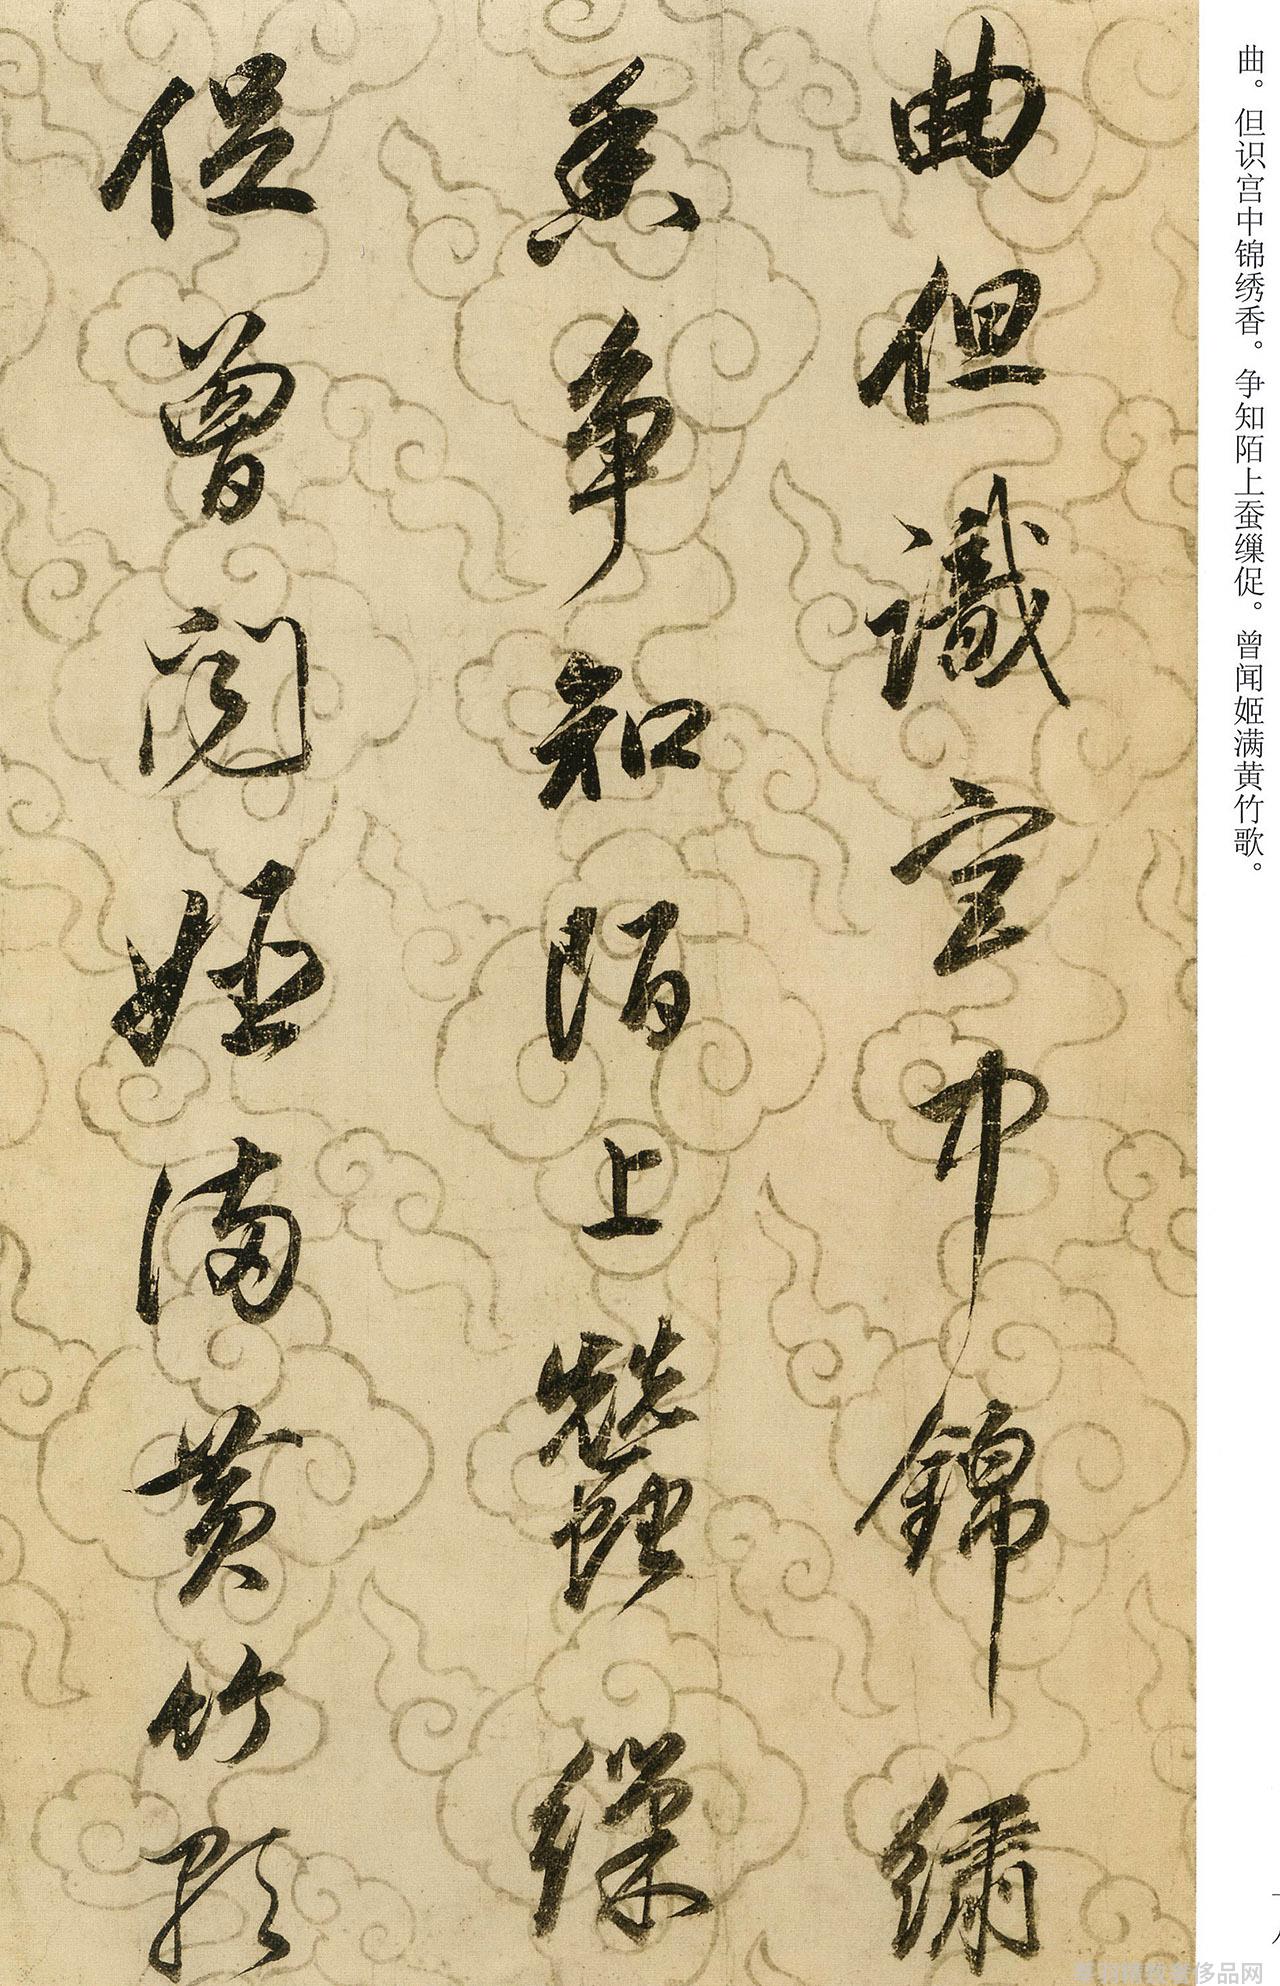 曲。但识宫中锦绣香。争知陌上蚕缫促。曾闻姬满黄竹歌。
曲但識宮中錦繡
香争知陌上蠶繅
促曾聞姬滿黄竹歌